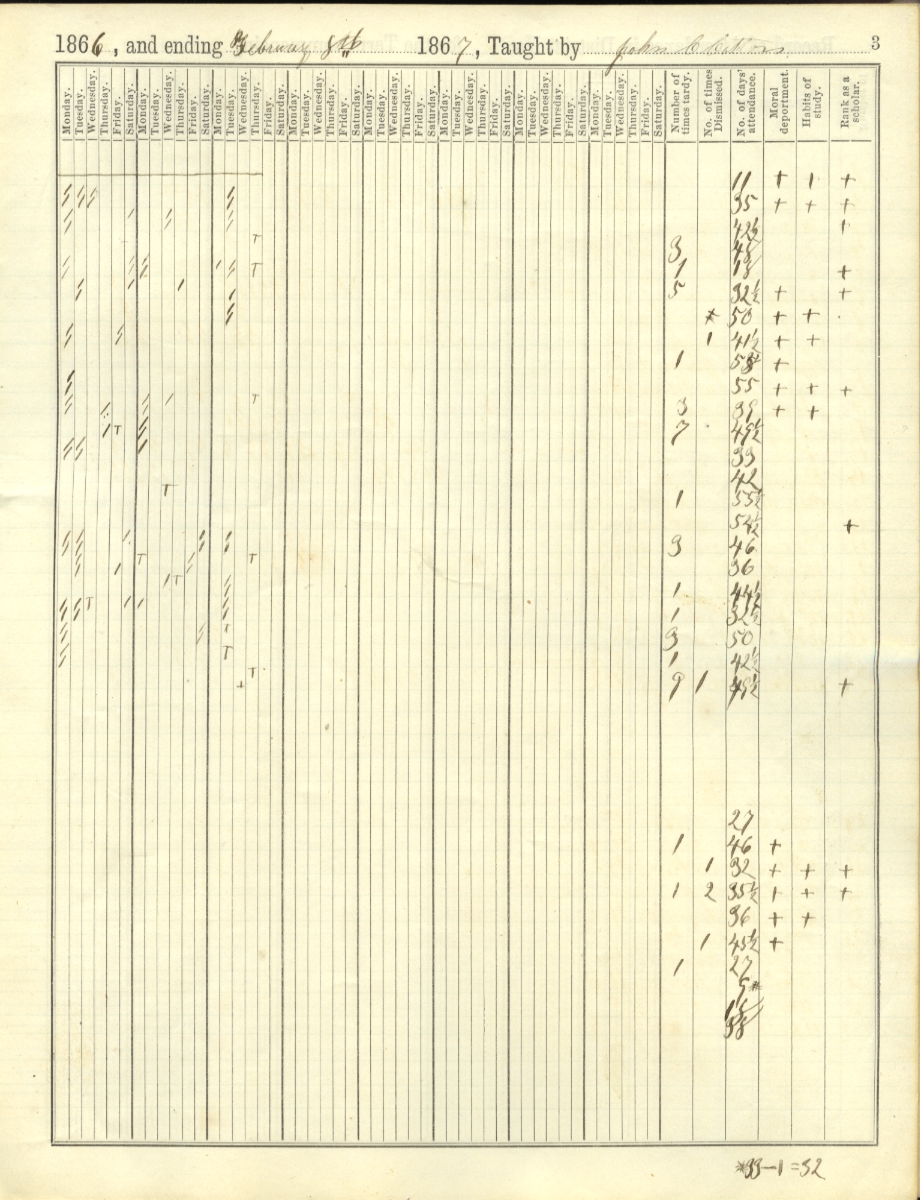 1866, and ending February 8th 1867, Taught by John 3
Monday. Tuesday. Wednesday. Thursday. Friday. Saturday. Monday. Tuesday. Wednesday. Thursday. Friday. Saturday. Monday. Tuesday. Wednesday. Thursday. Friday. Saturday. Monday. Tuesday. Wednesday. Thursday. Friday. Saturday. Monday. Tuesday. Wednesday. Thursday. Friday. Saturday. Monday. Tuesday. Wednesday. Thursday. Friday. Saturday. Monday. Tuesday. Wednesday. Thursday. Friday. Saturday. Monday. Tuesday. Wednesday. Thursday. Friday. Saturday. Number of times tardy. No. of times Dismissed. No. of days' attendance. Moral deportment. Habits of study. Rank as a scholar.
11 + 1 +
35 + + +
42½ +
T
3 48
T 1 18 +
5 32½ + +
* 50 + +
1 41½ + +
1 +
55 + + +
T 3 39 + +
T 7 49½
33
42
T 1 55½
54½ +
3 46
T T 36
T
1 44½
T 1 32½
3 50
T 1 42½
T
+ 9 1 49½ +
27
1 46 +
1 32 + + +
1 2 35½ + + +
36 + +
1 45½ +
1 27
5*
38
*33-1=32